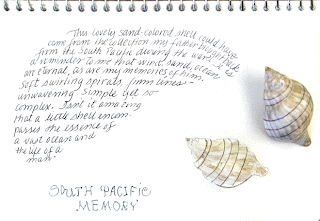 This lovely sand-colored shell could have
come from the collection my father brought back
from the South Pacific during the war. It is
a reminder to me that wind, sand, ocean
are eternal, as are my memories of him.
Soft swirling spirals, firm lines --
unwavering. Simple yet so
complex. Isn't it amazing
that a little shell encom-
passes the essence of
a vast ocean and
the life of a
man.
SOUTH PACIFIC
MEMORY